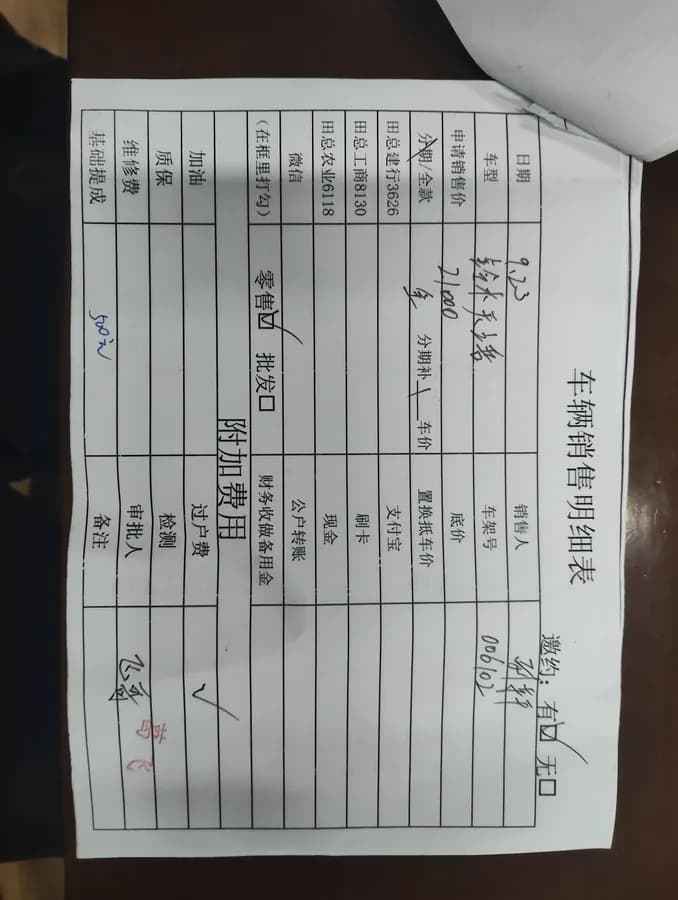 车辆销售明细表
邀约：有☑ 无□
日期 9.23 销售人
车型 铃木天语 车架号 006102
申请销售价 21000 底价
分期/全款 全 分期补\车价 置换抵车价
田总建行3626 支付宝
田总工商8130 刷卡
田总农业6118 现金
微信 公户转账
（在框里打勾） 零售☑ 批发□ 财务收做备用金
附加费用
加油 过户费 ✓
质保 检测
维修费 审批人
基础提成 500元 备注